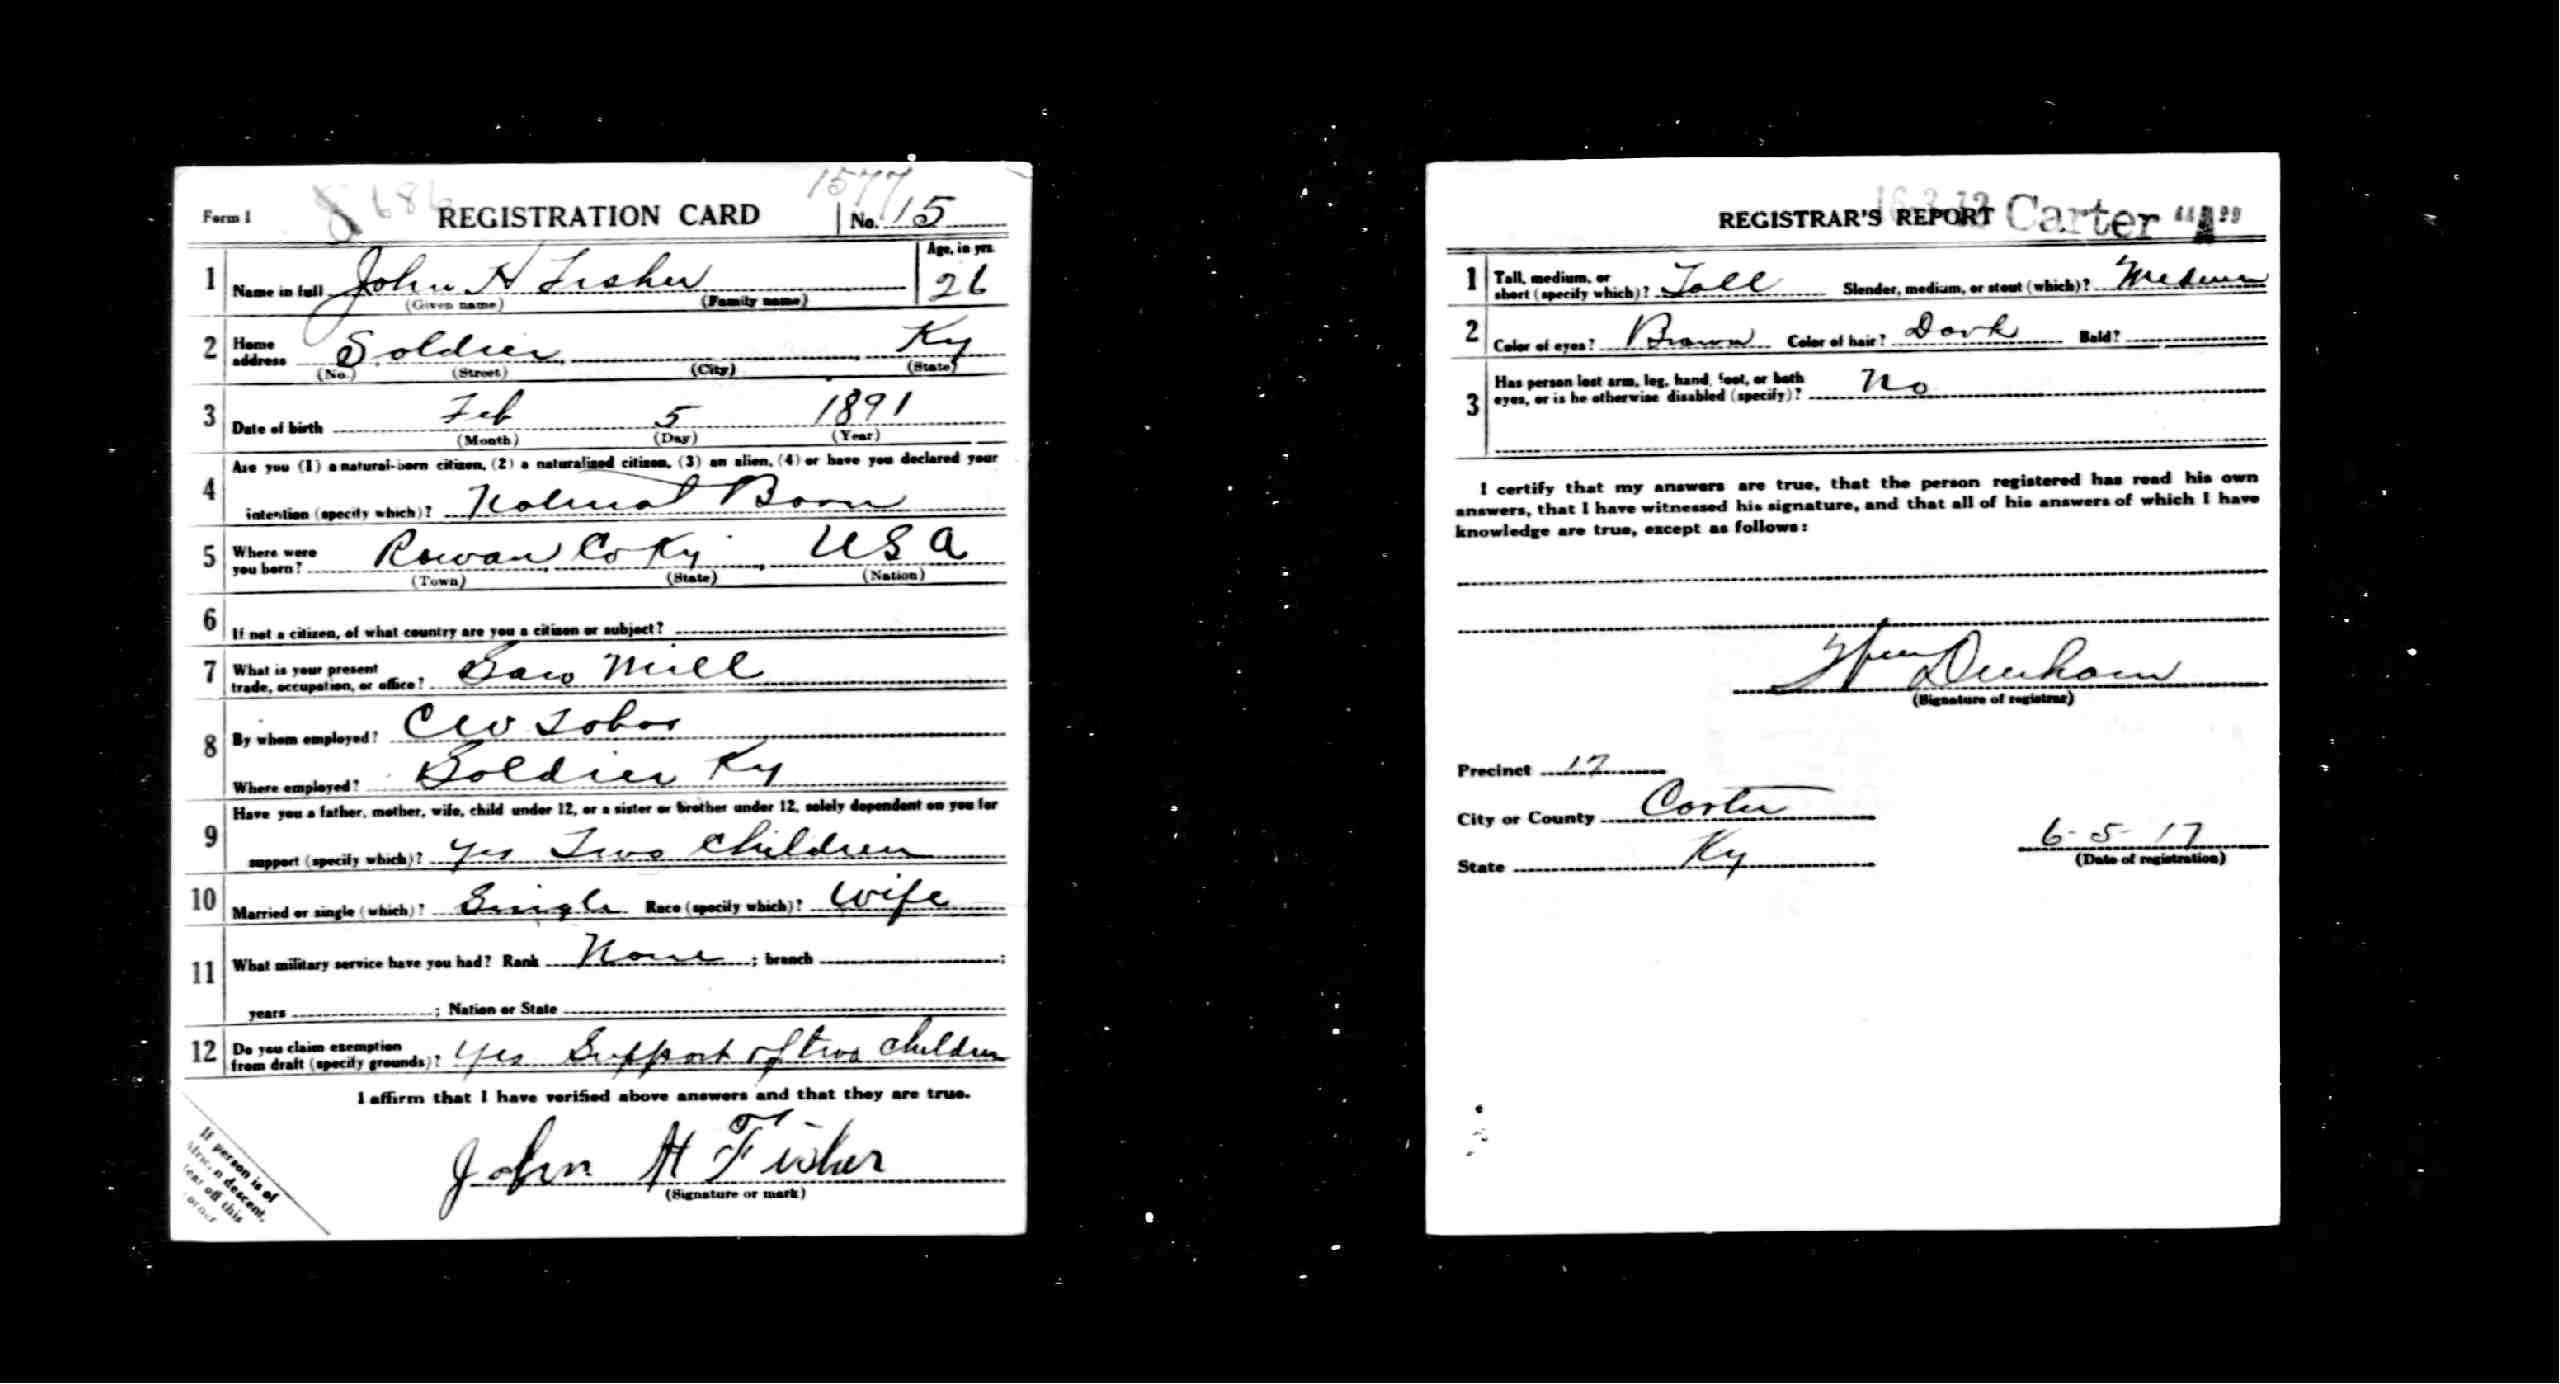 1577
8686
Form 1 REGISTRATION CARD No. 15
1 Name in full John H Fisher Age, in yrs. 26
(Given name) (Family name)
2 Home address Soldier Ky
(No.) (Street) (City) (State)
3 Date of birth Feb 5 1891
(Month) (Day) (Year)
4 Are you (1) a natural-born citizen, (2) a naturalized citizen, (3) an alien, (4) or have you declared your
intention (specify which)? Natural Born
5 Where were you born? Rowan Co Ky USA
(Town) (State) (Nation)
6 If not a citizen, of what country are you a citizen or subject?
7 What is your present
trade, occupation, or office? Saw Mill
8 By whom employed? CW
Where employed? Soldier Ky
9 Have you a father, mother, wife, child under 12, or a sister or brother under 12, solely dependent on you for
support (specify which)? Yes Two Children
10 Married or single (which)? Single Race (specify which)? Wife
11 What military service have you had? Rank None ; branch ;
years ; Nation or State
12 Do you claim exemption
from draft (specify grounds)? Yes Support of two children
I affirm that I have verified above answers and that they are true.
John H Fisher
(Signature or mark)
If person is of
African descent,
tear off this
corner
REGISTRAR'S REPORT Carter
1 Tall, medium, or
short (specify which)? Tall Slender, medium, or stout (which)? Medium
2 Color of eyes? Brown Color of hair? Dark Bald?
3 Has person lost arm, leg, hand, foot, or both
eyes, or is he otherwise disabled (specify)? No
I certify that my answers are true, that the person registered has read his own
answers, that I have witnessed his signature, and that all of his answers of which I have
knowledge are true, except as follows:
Wm Denham
(Signature of registrar)
Precinct 17
City or County Carter
State Ky 6-5-17
(Date of registration)